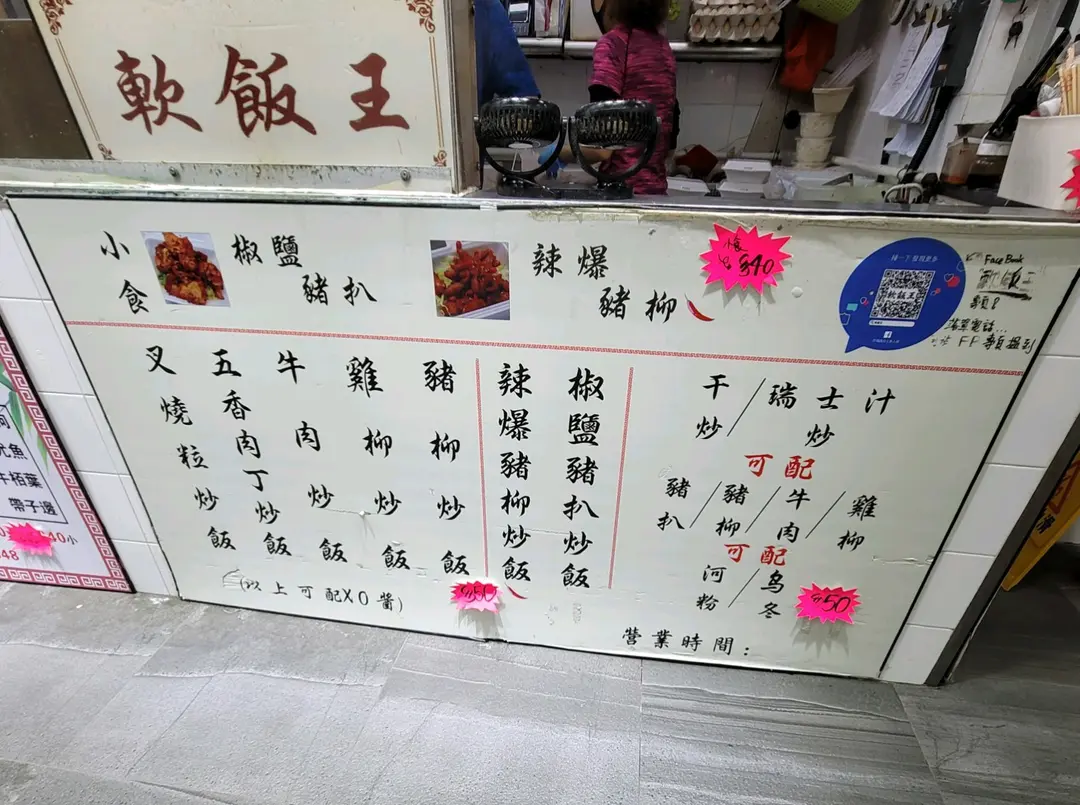 軟飯王
小食
椒鹽豬扒
辣爆豬柳
$40
掃一下 發現更多
軟飯王
Face Book
軟飯王
專頁
FF專頁搵到
叉燒粒炒飯
五香肉丁炒飯
牛肉炒飯
雞柳炒飯
豬柳炒飯
(以上可配XO醬)
$50
辣爆豬柳炒飯
椒鹽豬扒炒飯
干炒/瑞士汁炒
可配
豬扒/豬柳/牛肉/雞柳
可配
河粉/乌冬
$50
營業時間:
魷魚
牛栢葉
帶子邊
48